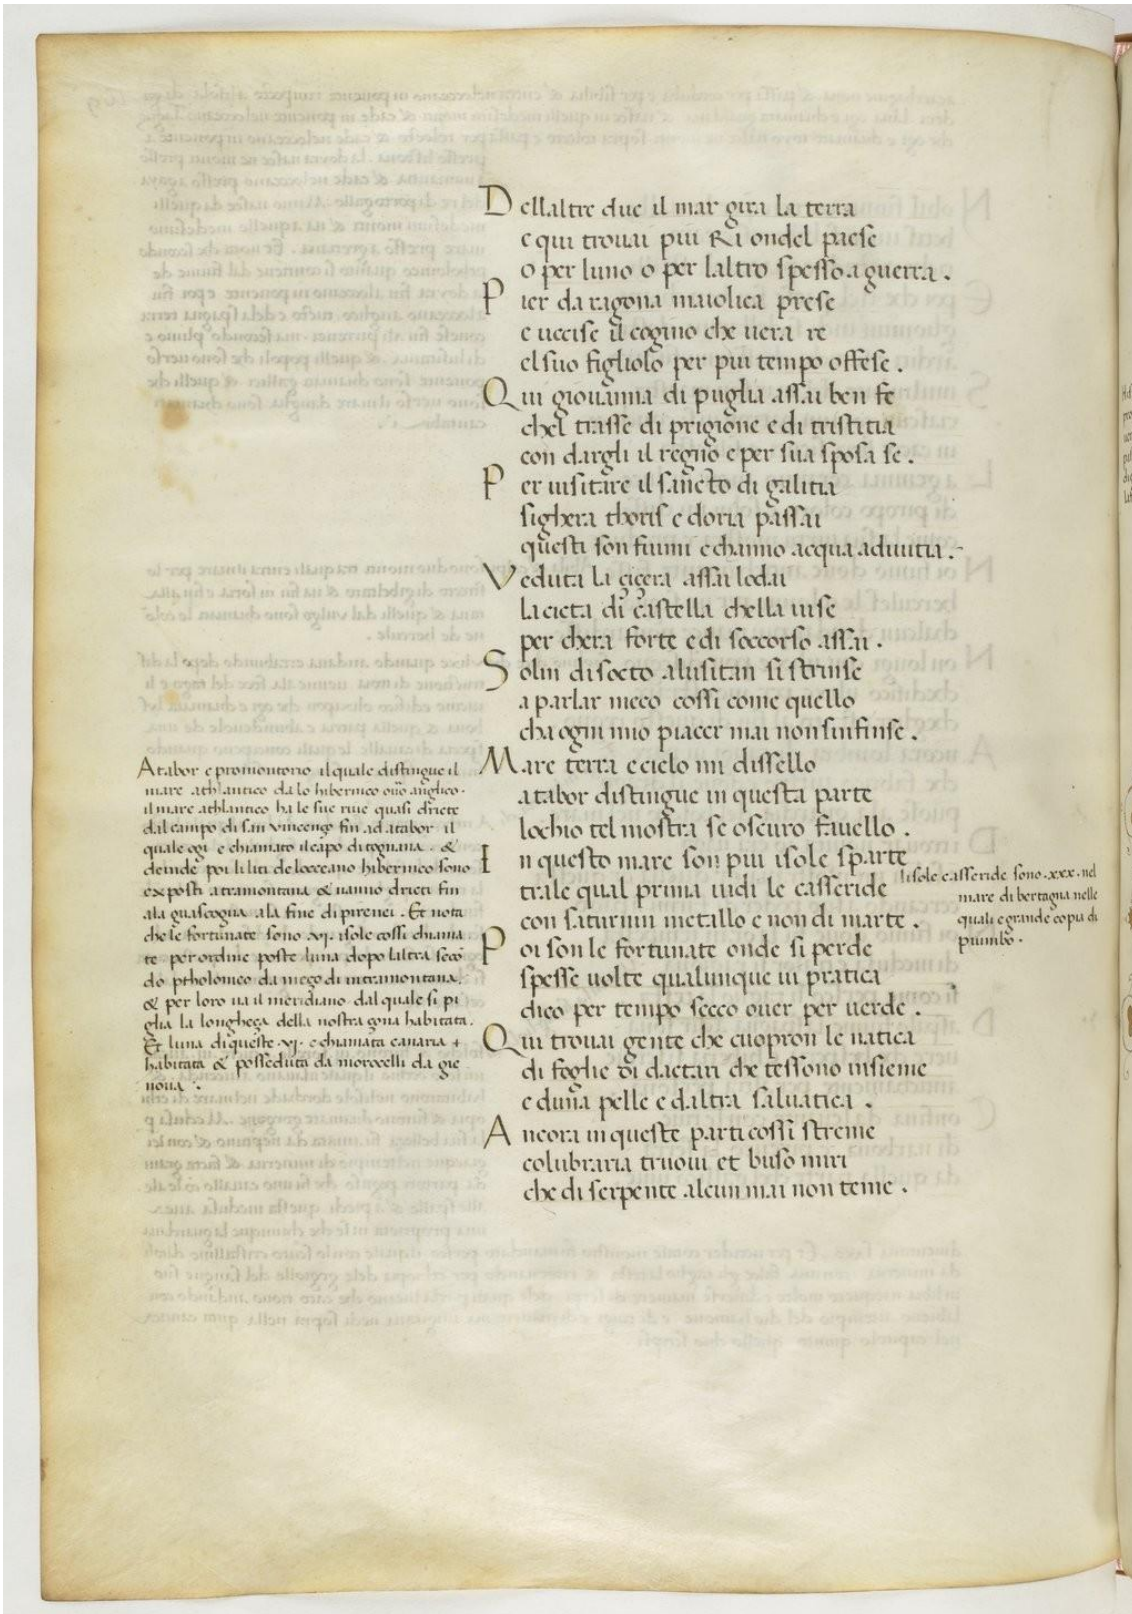 Dellaltre due il mar gira la terra
e qui trouai piu Ri ondel paese
o per luno o per laltro spesso a guerra .
Pier da ragona maiolica prese
e uccise il cogino che uera re
el suo figliolo per piu tempo offese .
Qui giouanna di puglia assai ben fe
chel trasse di prigione e di tristitia
con dargli il regno e per sua sposa se .
Per uisitare il sancto di galitia
sighera thoris e doria passai
questi son fiumi e channo acqua a diuitia .
Veduta la giçera assai lodai
la cicta di castella chella uise
per chera forte e di soccorso assai .
Solin di socto a lusitan si strinse
a parlar meco cossi come quello
cha ogni mio piacer mai non sinfinse .
Mare terra e cielo mi dissello
atabor distingue in questa parte
lochio tel mostra se oscuro fauello .
In questo mare son piu isole sparte
trale qual prima uidi le casseride
con saturnin metallo e non di marte .
Poi son le fortunate onde si perde
spesse uolte qualunque in pratica
dico per tempo secco ouer per uerde .
Qui trouai gente che cuopron le natica
di foglie di dactari che tessono insieme
e duna pelle e daltra saluatica .
Ancora in queste parti cossi streme
colubraria truoui et buso miri
che di serpente alcun mai non teme .
Atabor e promontorio il quale distingue il
mare athlantico da lo hibernico ouo anglico .
il mare athlantico ha le sue riue quasi driete
dal campo di san vincenço fin ad atabor il
quale ogi e chiamato il capo di tognana . &
deinde poi li liti de locceano hibernico sono
exposti a tramontana & uanno drieti fin
ala guascogna ala fine di pirenei . Et nota
che le fortunate sono .xj. isole cossi chiama
te per ordine poste luna dopo laltra seco
do ptholomeo da meço di intramontana .
& per loro ua il meridiano dal quale si pi
glia la longheça della nostra çona habitata .
Et luna di queste .xj. e chiamata canaria +
habitata & posseduta da morocelli da gie
noua .
lisole casseride sono .xxx. nel
mare di bertagna nelle
quali e grande copia di
piumbo .